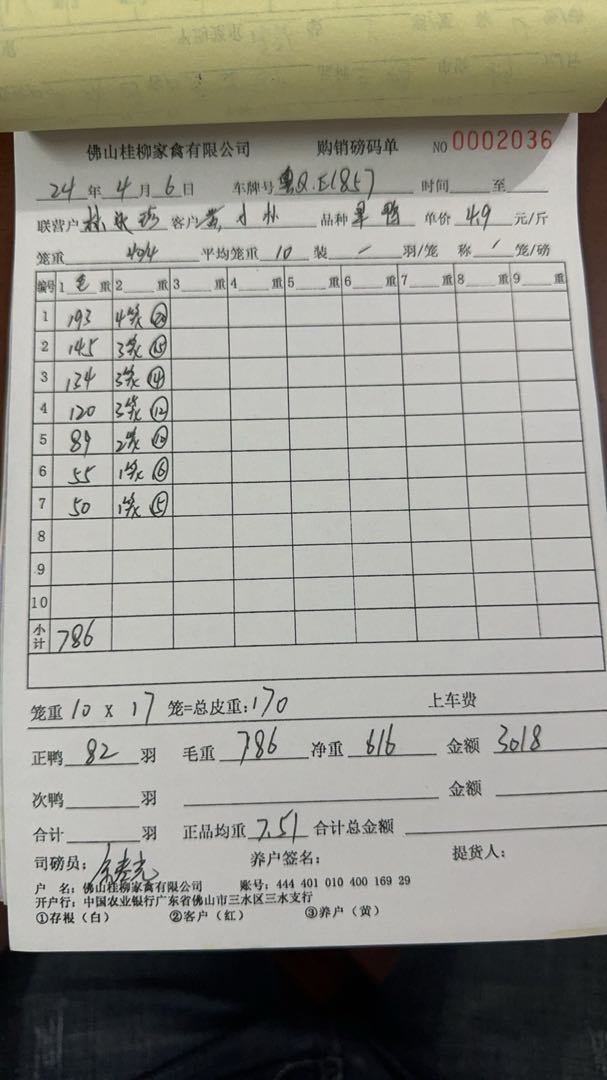 佛山桂柳家禽有限公司 购销磅码单 NO 0002036
24 年 4 月 6 日 车牌号 粤Q.E1857 时间 至
联营户 林 客户 黄小林 品种 鸭 单价 4.9 元/斤
笼重 平均笼重 10 装 / 羽/笼 称 / 笼/磅
编号 1 毛 重 2 重 3 重 4 重 5 重 6 重 7 重 8 重 9 重
1 193 4笼 ⑳
2 145 3笼 ⑮
3 134 3笼 ⑭
4 120 3笼 ⑫
5 89 2笼 ⑩
6 55 1笼 ⑥
7 50 1笼 ⑤
8
9
10
小计 786
笼重 10 x 17 笼=总皮重: 170 上车费
正鸭 82 羽 毛重 786 净重 616 金额 3018
次鸭 羽 金额
合计 羽 正品均重 7.51 合计总金额
司磅员: 养户签名: 提货人:
户 名: 佛山桂柳家禽有限公司 账号: 444 401 010 400 169 29
开户行: 中国农业银行广东省佛山市三水区三水支行
①存根（白） ②客户（红） ③养户（黄）